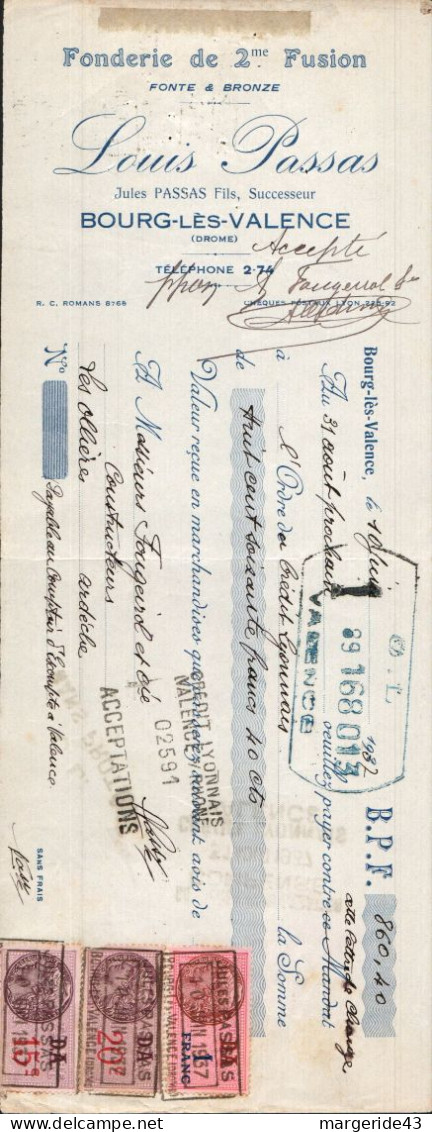 Fonderie de 2me Fusion
FONTE & BRONZE
Louis Passas
Jules PASSAS Fils, Successeur
BOURG-LÈS-VALENCE
(DROME)
Accepté
TÉLÉPHONE 2-74
ppon
R. C. ROMANS 8765
CHÈQUES POSTAUX LYON 225-92
Bourg-lès-Valence, le 10 Juin 1937 B.P.F. 860,40
Au 31 août prochain veuillez payer contre ce Mandat
cette lettre de change,
à l'Ordre du Crédit Lyonnais la Somme
de huit cent soixante francs 40 cts
Valeur reçue en marchandises que passerez suivant avis de
A Messieurs Fougeirol et Cie
Constructeurs
Les Ollières ardèche
No
Payable au Comptoir d'Escompte à Valence
SANS FRAIS
C. L.
89 168013
VALENCE
CRÉDIT LYONNAIS
VALENCE s/ RHONE
02591
ACCEPTATIONS
DA
15c
DA
20c
JULES PASSAS
1 FRANC
delcampe.net
margeride43